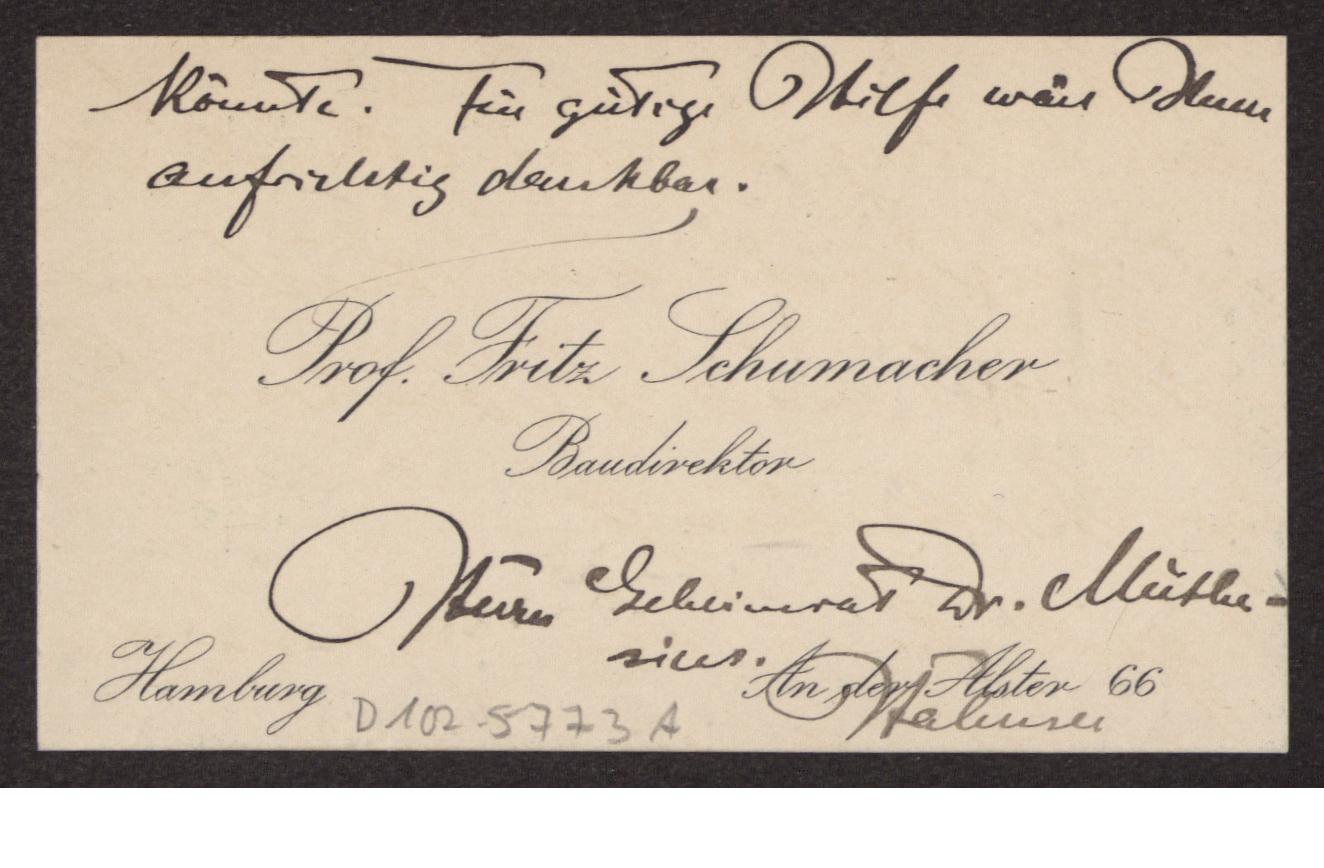 könnte. Für gütige Hilfe wäre Ihnen
aufrichtig dankbar.
Prof. Fritz Schumacher
Baudirektor
Herrn Geheimrat Dr. Muthe-
sius.
Hamburg
An der Alster 66
D 102-5773 A